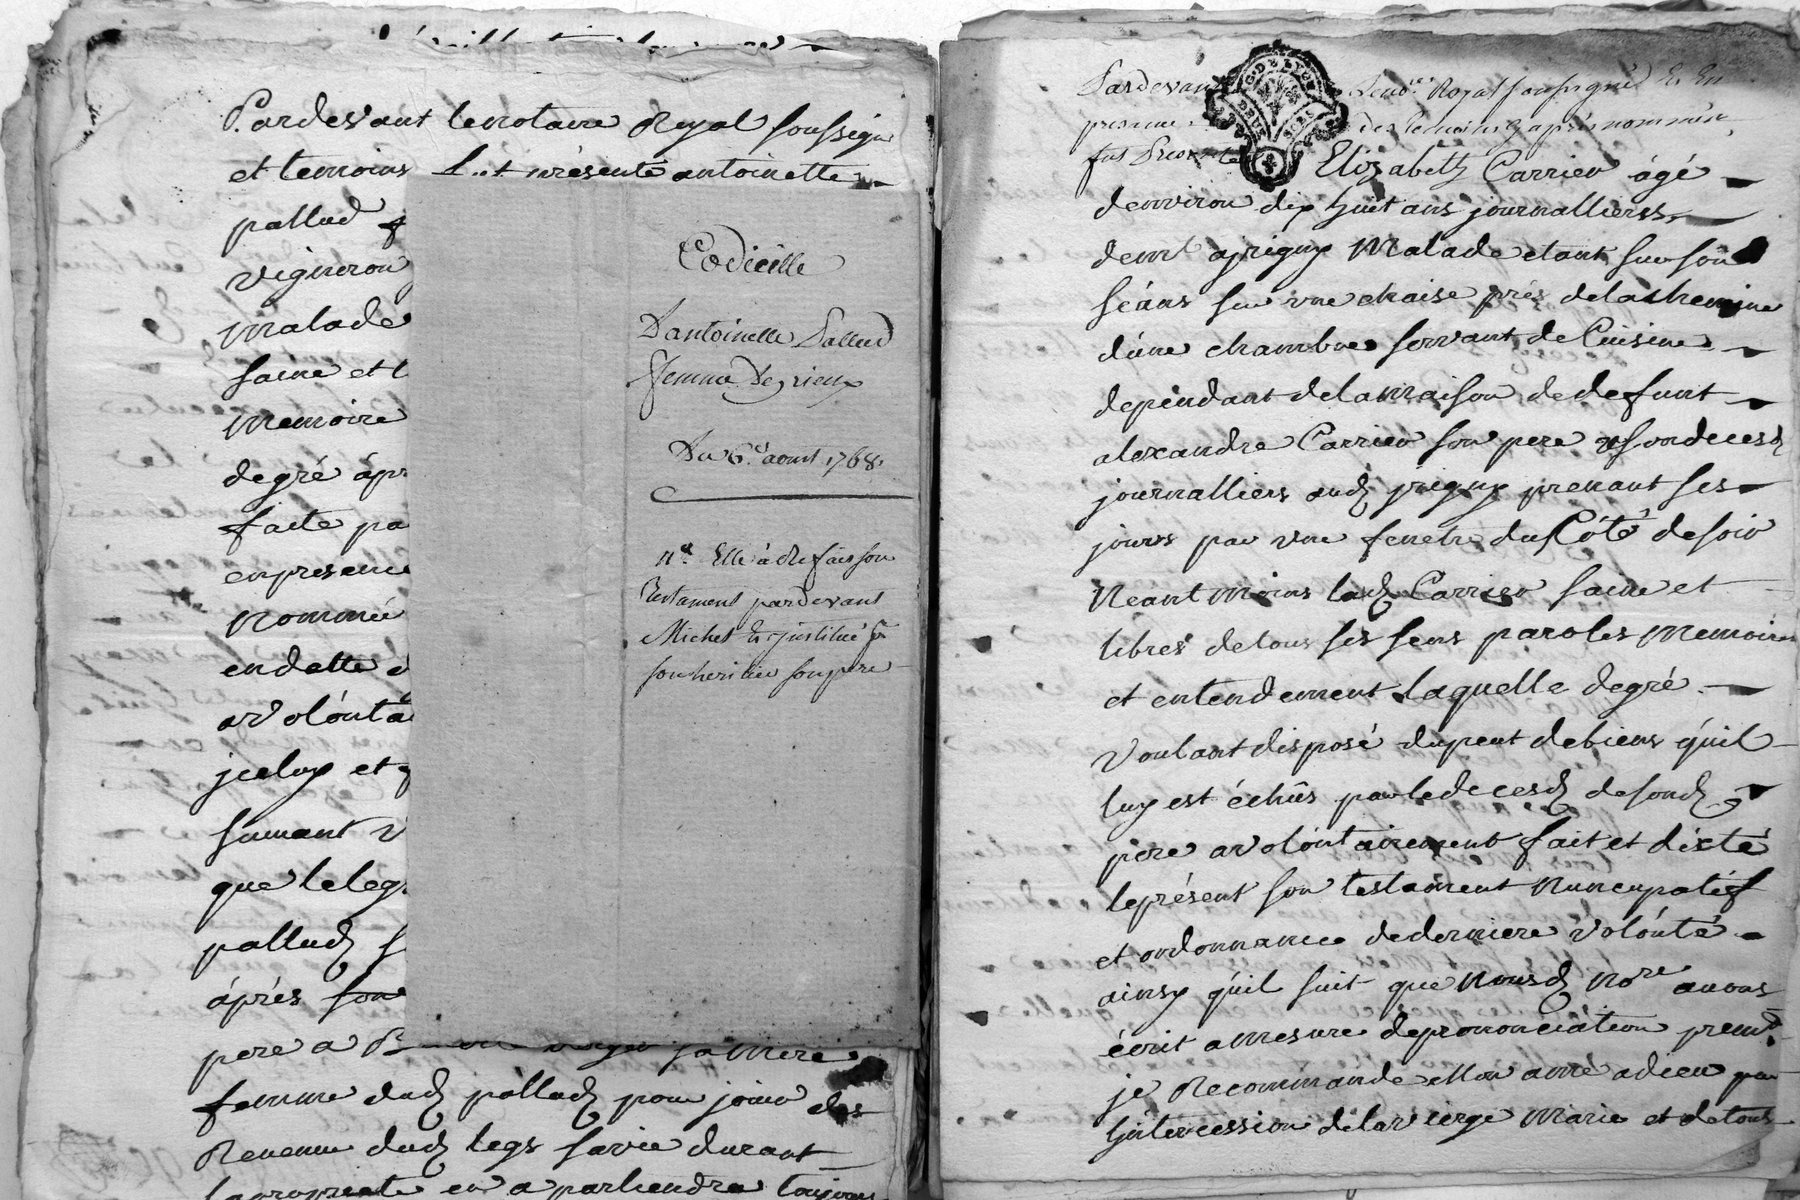 Pardevant le notaire Royal soussigné
et temoins fut présente antoinette
pallud f
vigneron
malade
saine et l
memoire
degré apr
faite pa
en presence
nommée
en datte d
a volonta
jceluy et
suivant
que le leg
pallud s
áprés son
pere a sa mere
femme dud pallud pour jouir des
Revenu dud legs sa vie durant
la propriete en apartiendra toujours
Codicille
D'antoinette Pallud
femme Degrieux
Du 6.e aout 1768.
na. Elle à Refais son
Testament pardevant
Michel Et jnstitué pr
son heritier son pere
G. DE LYON
DEUX SOLS
Pardevant Le no.re Royal soussigné Et En
presence des temoins aprés nommés
fut Presente Elizabeth Carrier ágé
denviron dix huit ans journalliers
demt a jrigny Malade etant sur son
séans sur une chaise prés de la cheminé
d'une chambre servant de Cuisine
dependant de la maison de defunt
alexandre Carrier son pere
journalliers aud jrigny prenant ses
jours par une fenetre du Côté de soir
Neant moins lad Carrier saine et
libres de tous ses sens paroles memoires
et entendement laquelle de gré
voulant disposé du peut de biens qúil
luy est échûs par le decesd de sond
pere a volontairement fait et dicté
le présent son testament nuncupatif
et ordonnance de derniere volonté
ainsy qúil suit que nousd No.re avons
écrit a mesure de prononciation premt
je Recommande mon ame a dieu par
Lintercession de la vierge Marie et de tous